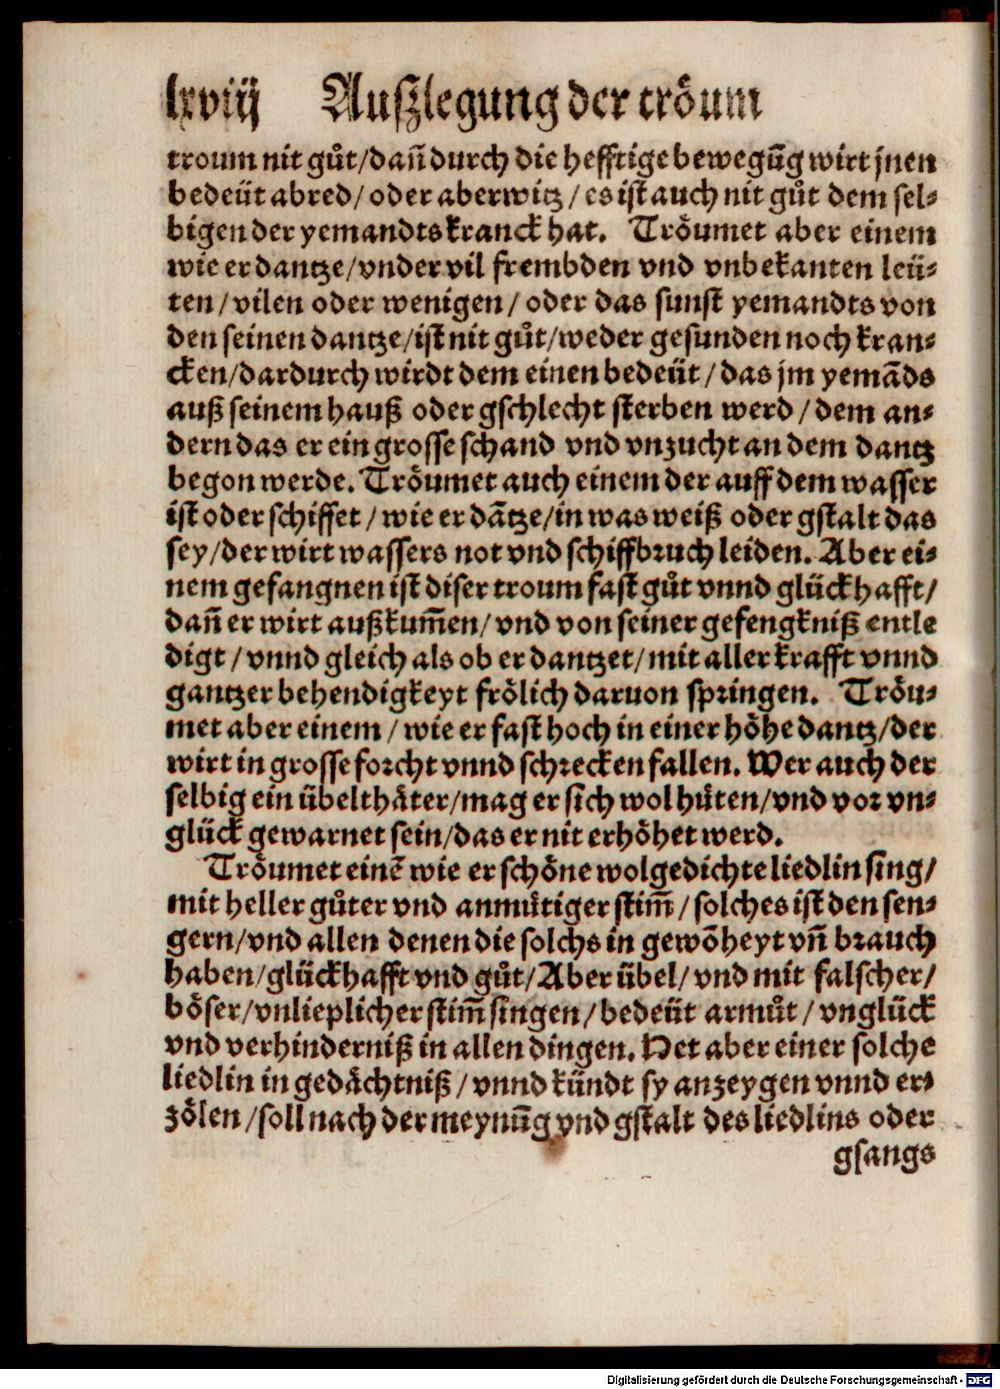 lxviij Auszlegung der tröum
troum nit gůt/dañ durch die hefftige bewegũg wirt jnen
bedeüt abred/oder aberwitz/es ist auch nit gůt dem sel-
bigen der yemandts kranck hat. Tröumet aber einem
wie er dantze/vnder vil frembden vnd vnbekanten leü-
ten/vilen oder wenigen/oder das sunst yemandts von
den seinen dantze/ist nit gůt/weder gesunden noch kran-
cken/dardurch wirdt dem einen bedeüt/das jm yemãds
auß seinem hauß oder gschlecht sterben werd/dem an-
dern das er ein grosse schand vnd vnzucht an dem dantz
begon werde. Tröumet auch einem der auff dem wasser
ist oder schiffet/wie er dãtze/in was weiß oder gstalt das
sey/der wirt wassers not vnd schiffbruch leiden. Aber ei-
nem gefangnen ist diser troum fast gůt vnnd glückhafft/
dañ er wirt außkum̃en/vnd von seiner gefengkniß entle
digt/vnnd gleich als ob er dantzet/mit aller krafft vnnd
gantzer behendigkeyt frölich daruon springen. Tröu-
met aber einem/wie er fast hoch in einer höhe dantz/der
wirt in grosse forcht vnnd schrecken fallen. Wer auch der
selbig ein übelthäter/mag er sich wol hüten/vnd vor vn-
glück gewarnet sein/das er nit erhöhet werd.
Tröumet einẽ wie er schöne wolgedichte liedlin sing/
mit heller gůter vnd anmütiger stim̃/solches ist den sen-
gern/vnd allen denen die solchs in gewõheyt vñ brauch
haben/glückhafft vnd gůt/Aber übel/vnd mit falscher/
böser/vnlieplicher stim̃ singen/bedeüt armůt/vnglück
vnd verhinderniß in allen dingen. Het aber einer solche
liedlin in gedächtniß/vnnd kündt sy anzeygen vnnd er-
zölen/soll nach der meynũg vnd gstalt des liedlins oder
gsangs
Digitalisierung gefördert durch die Deutsche Forschungsgemeinschaft - DFG